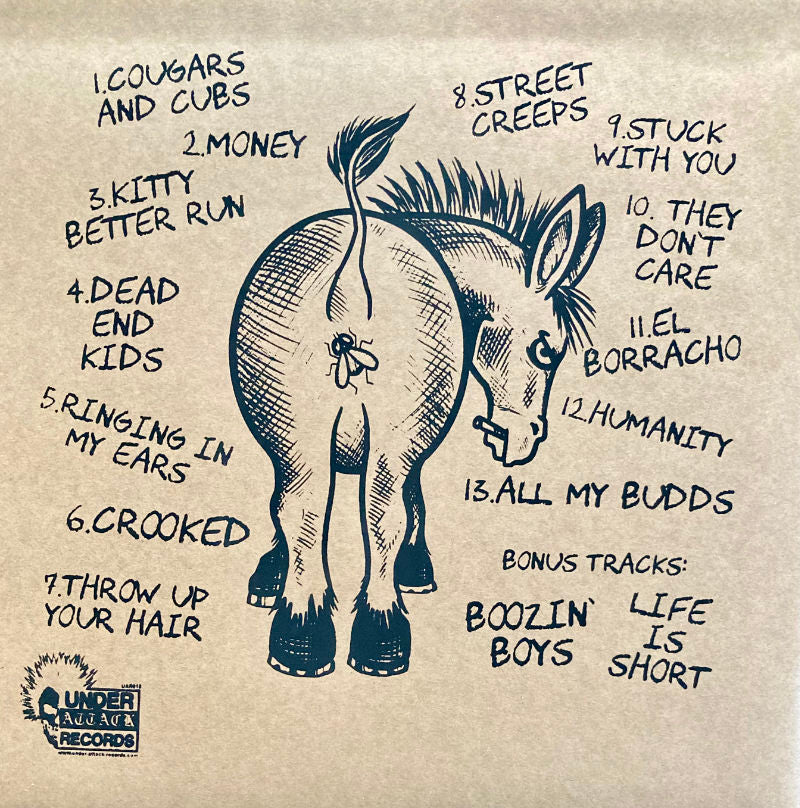 1.COUGARS
AND CUBS
2.MONEY
3.KITTY
BETTER RUN
4.DEAD
END
KIDS
5.RINGING IN
MY EARS
6.CROOKED
7.THROW UP
YOUR HAIR
8.STREET
CREEPS
9.STUCK
WITH YOU
10. THEY
DON'T
CARE
11.EL
BORRACHO
12.HUMANITY
13.ALL MY BUDDS
BONUS TRACKS:
BOOZIN'
BOYS
LIFE
IS
SHORT
UNDER
ATTACK
RECORDS
www.under-attack-records.com